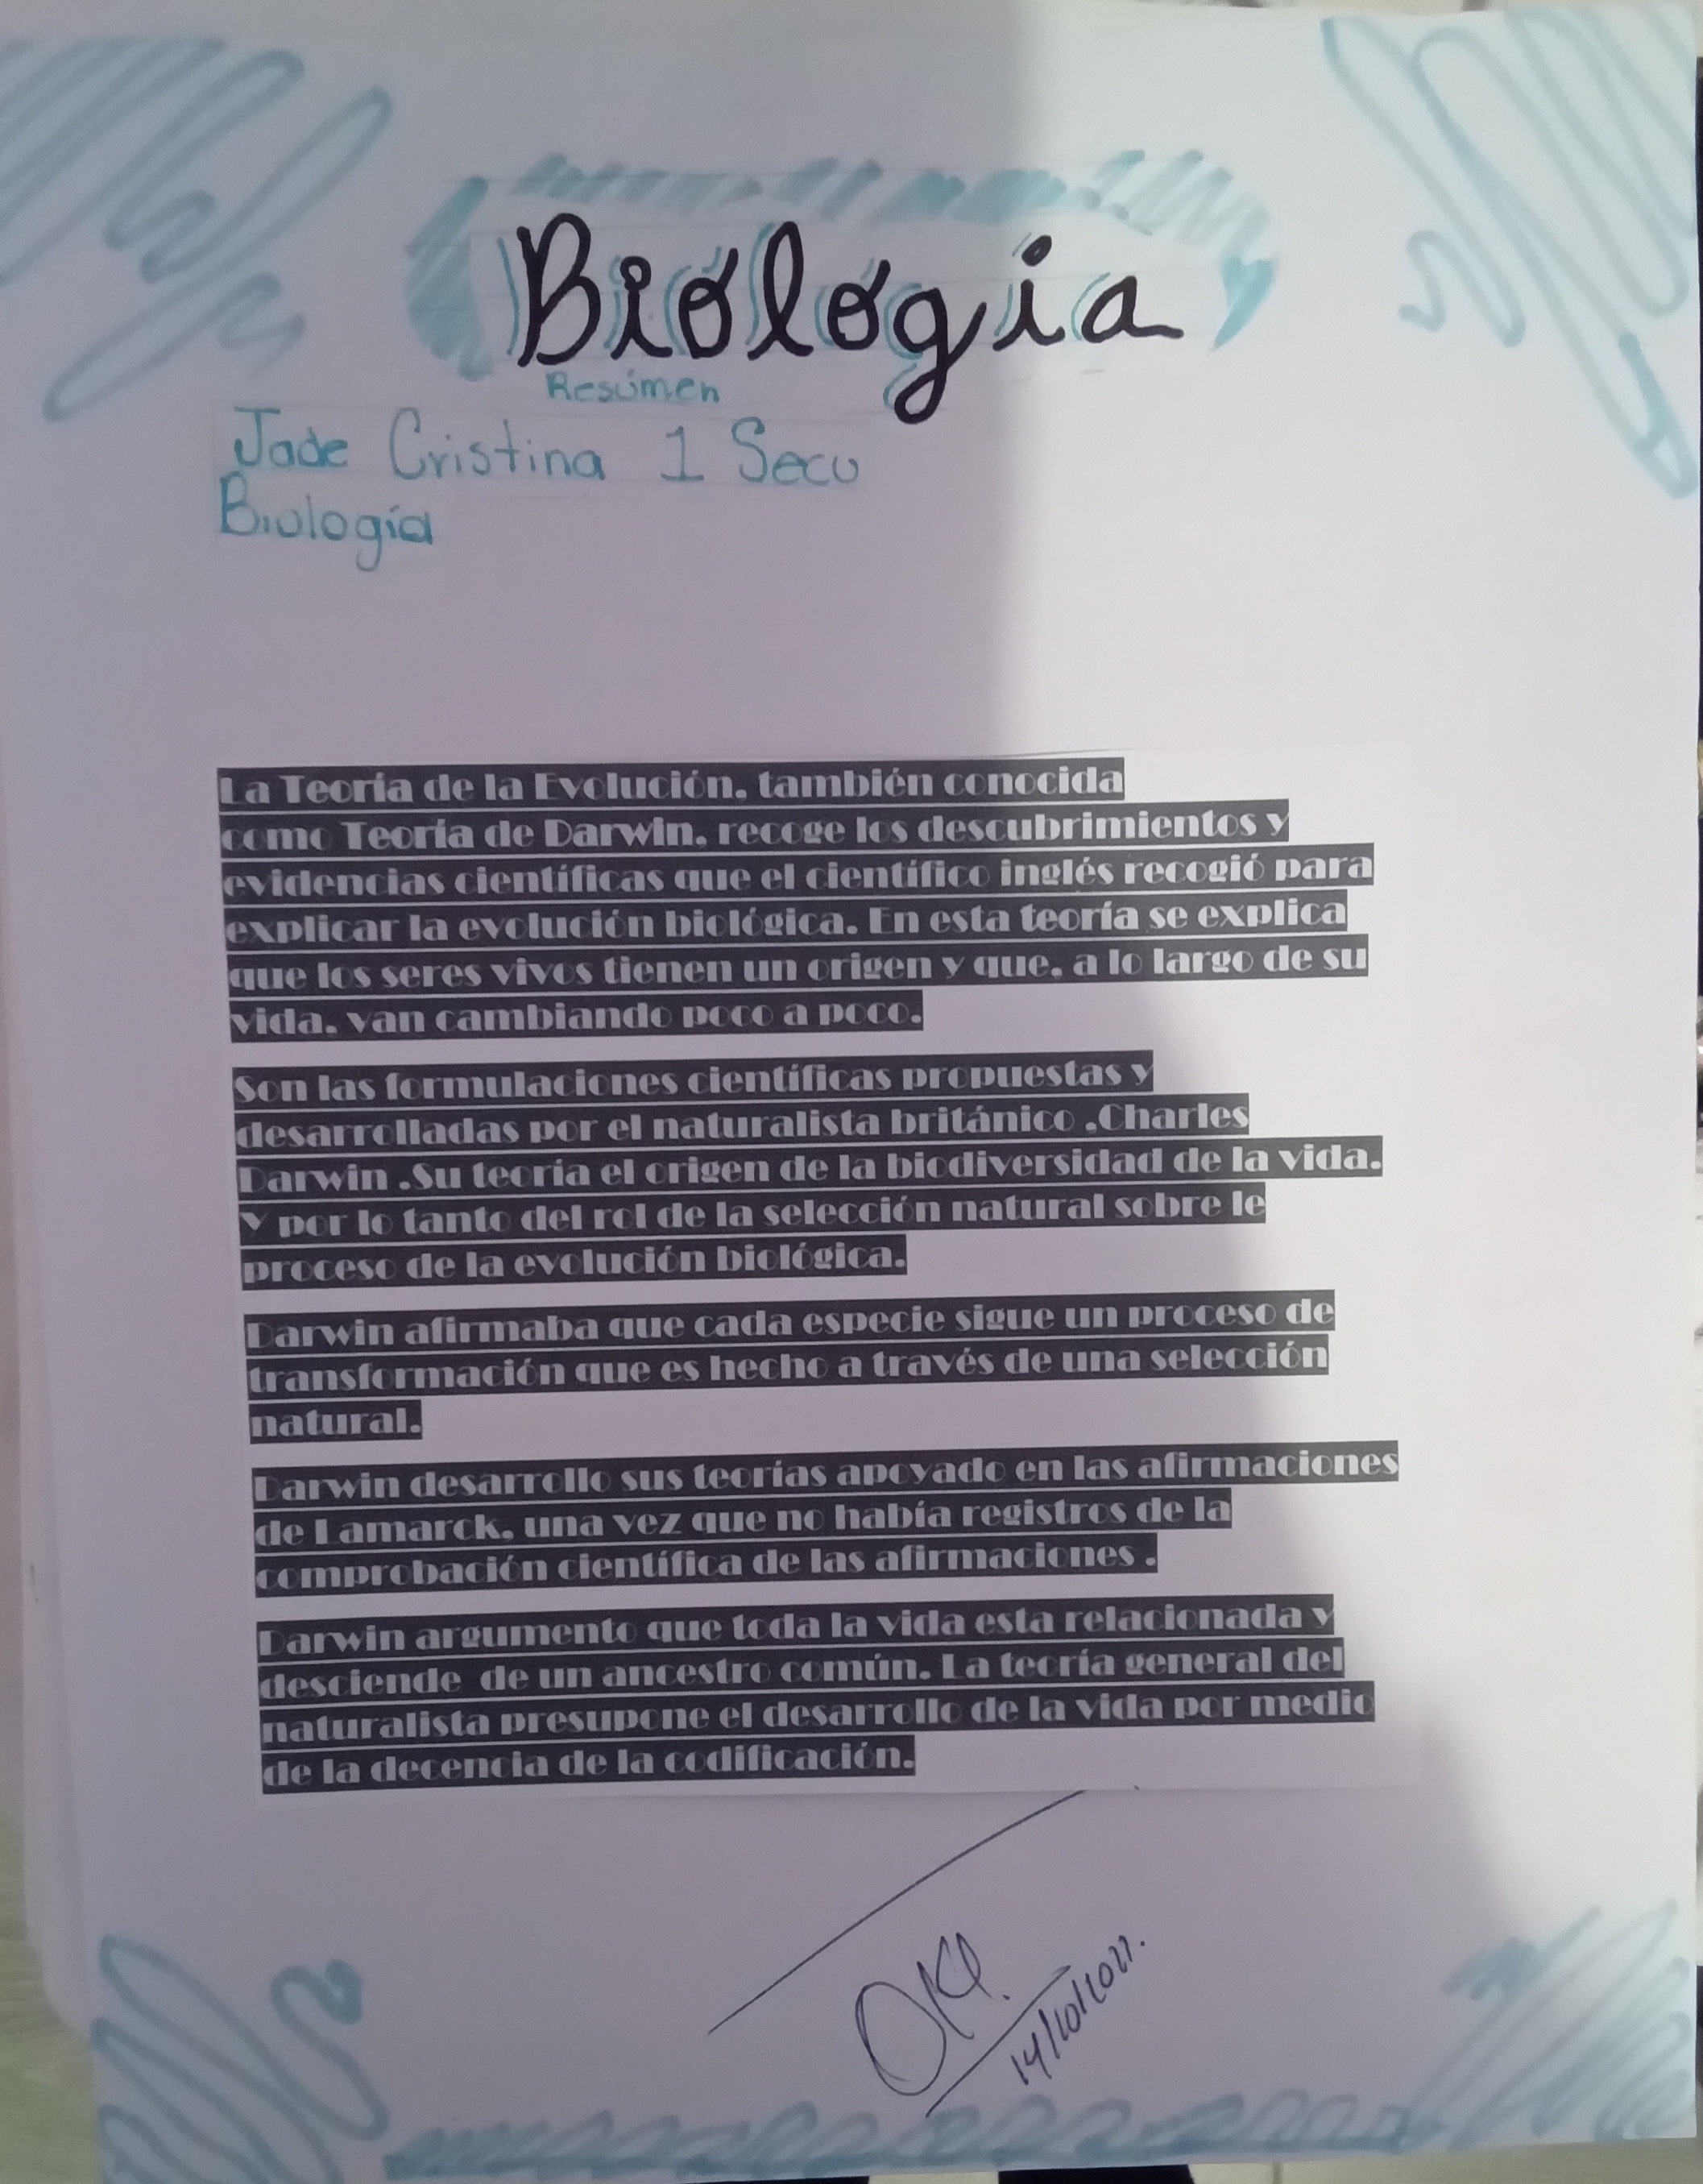 Biologia
Resúmen
Jade Cristina 1 Secu
Biología
La Teoría de la Evolución, también conocida
como Teoría de Darwin, recoge los descubrimientos y
evidencias científicas que el científico inglés recogió para
explicar la evolución biológica. En esta teoría se explica
que los seres vivos tienen un origen y que, a lo largo de su
vida, van cambiando poco a poco.
Son las formulaciones científicas propuestas y
desarrolladas por el naturalista británico ,Charles
Darwin .Su teoría el origen de la biodiversidad de la vida.
Y por lo tanto del rol de la selección natural sobre le
proceso de la evolución biológica.
Darwin afirmaba que cada especie sigue un proceso de
transformación que es hecho a través de una selección
natural.
Darwin desarrollo sus teorías apoyado en las afirmaciones
de Lamarck, una vez que no había registros de la
comprobación científica de las afirmaciones .
Darwin argumento que toda la vida esta relacionada y
desciende de un ancestro común. La teoría general del
naturalista presupone el desarrollo de la vida por medio
de la decencia de la codificación.
14/10/2022.